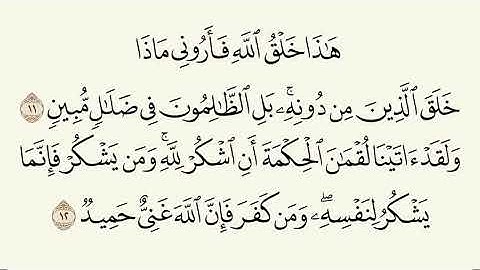 هَٰذَا خَلْقُ ٱللَّهِ فَأَرُونِى مَاذَا
خَلَقَ ٱلَّذِينَ مِن دُونِهِۦۚ بَلِ ٱلظَّٰلِمُونَ فِى ضَلَٰلٍ مُّبِينٍ ١١
وَلَقَدْ ءَاتَيْنَا لُقْمَٰنَ ٱلْحِكْمَةَ أَنِ ٱشْكُرْ لِلَّهِۚ وَمَن يَشْكُرْ فَإِنَّمَا
يَشْكُرُ لِنَفْسِهِۦۖ وَمَن كَفَرَ فَإِنَّ ٱللَّهَ غَنِىٌّ حَمِيدٌ ١٢